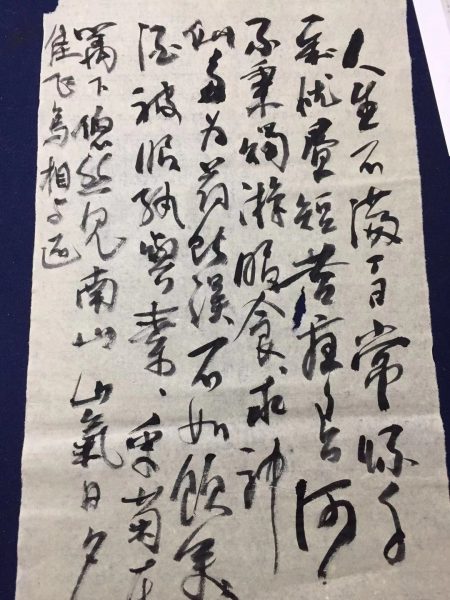 人生不满百常怀千
歳忧昼短苦夜长何
不秉烛游服食求神
仙多为药所误不如饮美
酒被服纨與素采菊东
篱下悠然见南山山氣日夕
佳飞鸟相与还